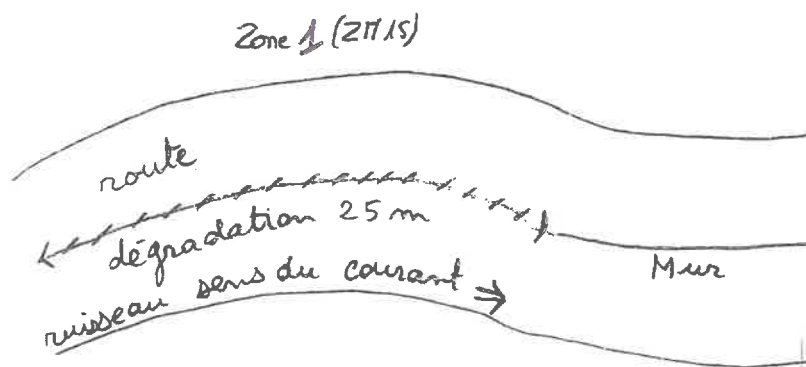 Zone 1 (ZM15)
route
dégradation 25 m
ruisseau sens du courant →
Mur